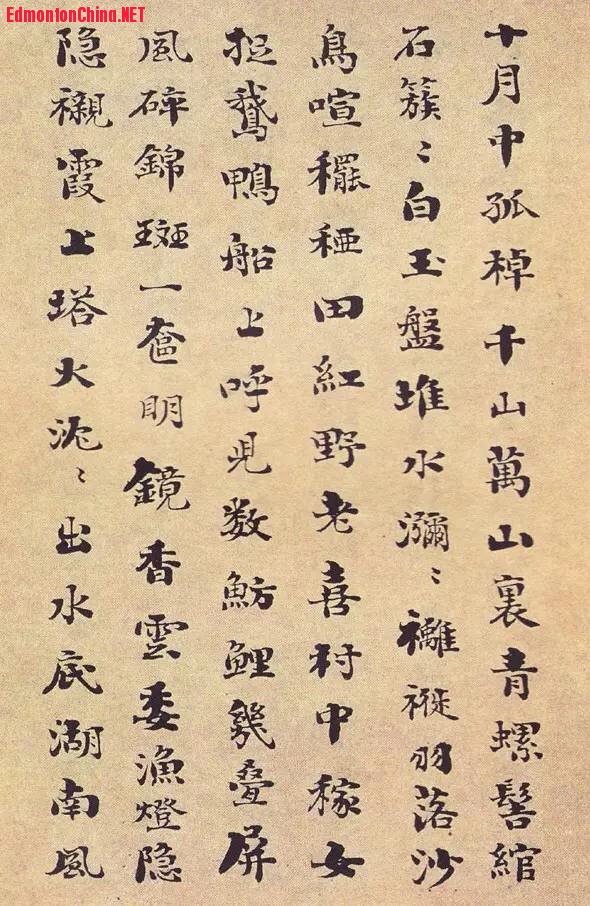 EdmontonChina.NET
十月中孤棹千山萬山裏青螺髻綰
石簇〻白玉盤堆水瀰〻襹褷羽落沙
鳥喧䆉稏田紅野老喜村中稼女
捉鵝鴨船上呼児数魴鯉幾疊屏
風碎錦斑一奩明鏡香雲委漁燈隐
隐襯霞上塔火沉〻出水底湖南風